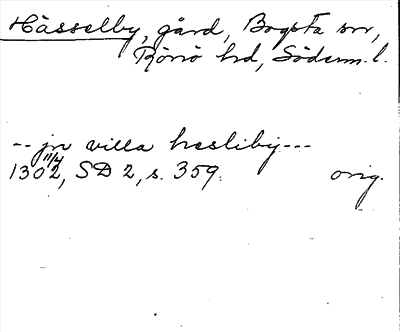 Hässelby, gård, Bogsta sn,
Rönö hd, Söderm. l.
-- jn villa hæslìby ---
11/4
1302, SD 2, s. 359. orig.